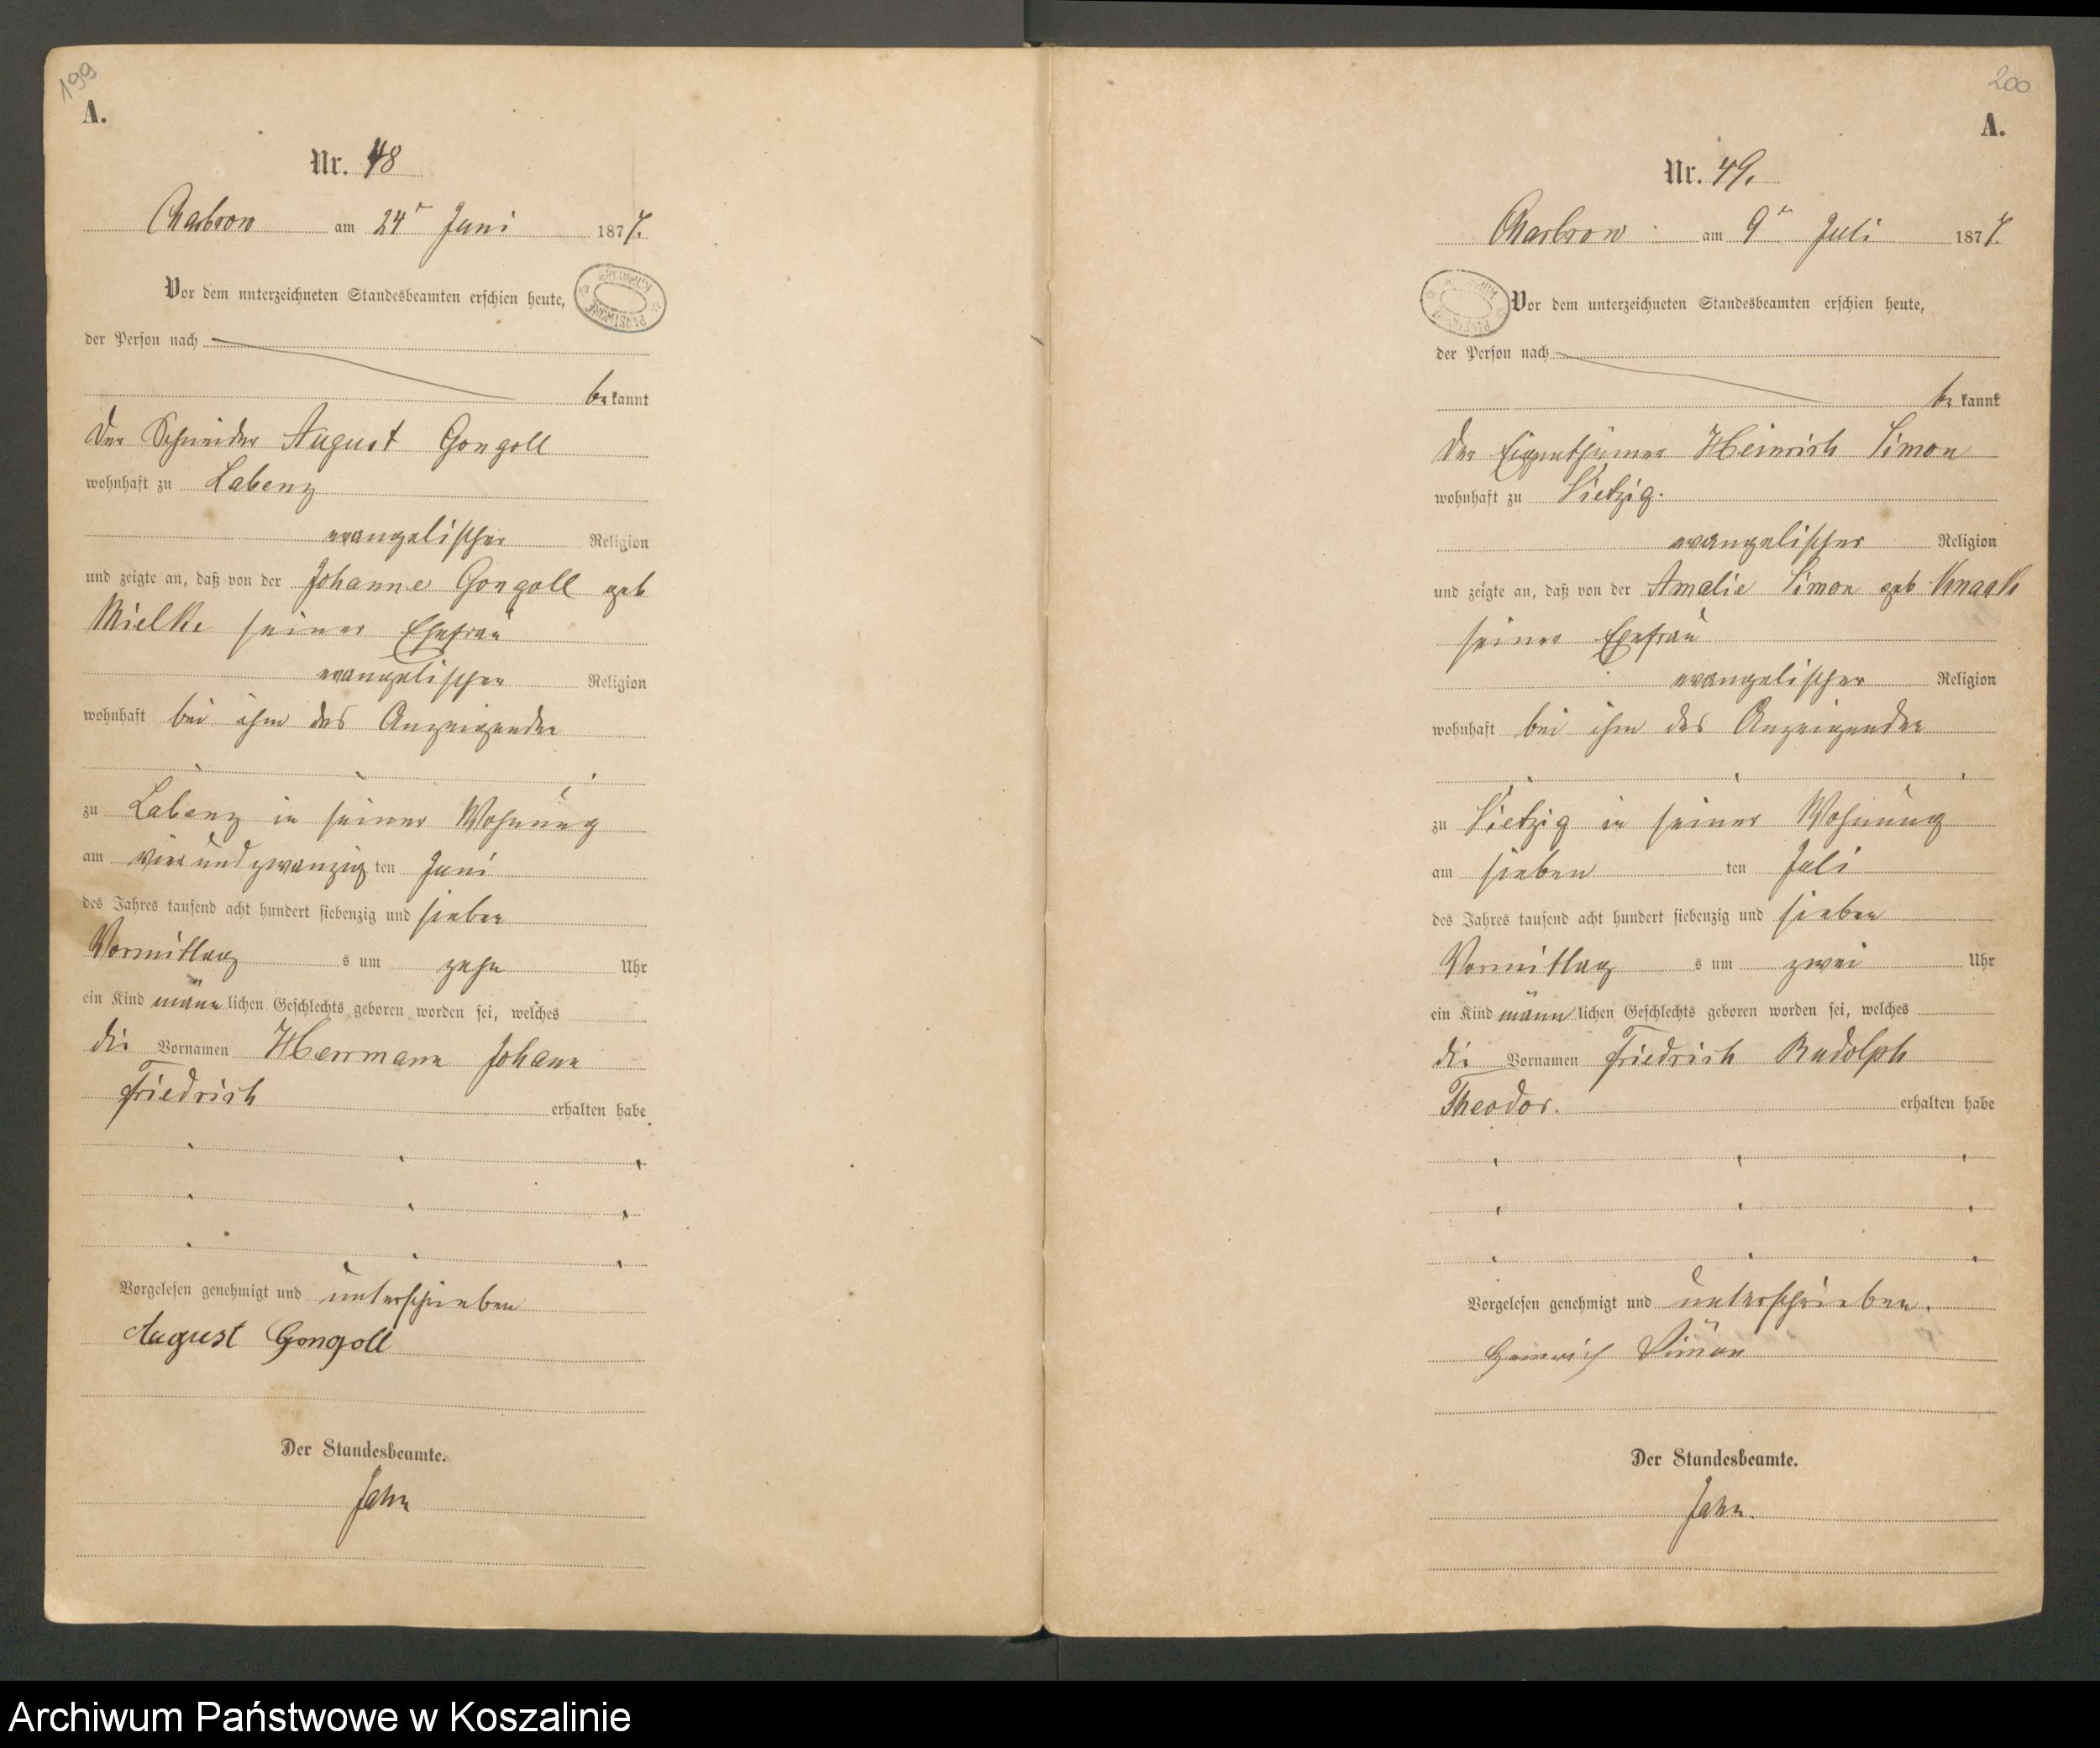 199
A.
Nr. 48
Charbrow am 24ᵗ Juni 1877.
Vor dem unterzeichneten Standesbeamten erschien heute,
der Person nach
be kannt
der Schneider August Gongoll
wohnhaft zu Labenz
evangelischer Religion
und zeigte an, daß von der Johanne Gongoll geb
Mielke seiner Ehefrau
evangelischer Religion
wohnhaft bei ihm des Anzeigender
zu Labenz in seiner Wohnung
am vier und zwanzig ten Juni
des Jahres tausend acht hundert siebenzig und sieben
Vormittag s um zehn Uhr
ein Kind männ lichen Geschlechts geboren worden sei, welches
die Vornamen Herrmann Johann
Friedrich erhalten habe
Vorgelesen genehmigt und unterschrieben
August Gongoll
Der Standesbeamte.
Jahn
200
A.
Nr. 49.
Charbrow am 9ᵗ Juli 1877.
Vor dem unterzeichneten Standesbeamten erschien heute,
der Person nach
be kannt
der Eigenthümer Heinrich Simon
wohnhaft zu Vietzig.
evangelischer Religion
und zeigte an, daß von der Amalie Simon geb Knaak
seiner Ehefrau
evangelischer Religion
wohnhaft bei ihm des Anzeigender
zu Vietzig in seiner Wohnung
am sieben ten Juli
des Jahres tausend acht hundert siebenzig und sieben
Vormittag s um zwei Uhr
ein Kind männ lichen Geschlechts geboren worden sei, welches
die Vornamen Friedrich Rudolph
Theodor. erhalten habe
Vorgelesen genehmigt und unterschrieben.
Heinrich Simon
Der Standesbeamte.
Jahn.
Archiwum Państwowe w Koszalinie